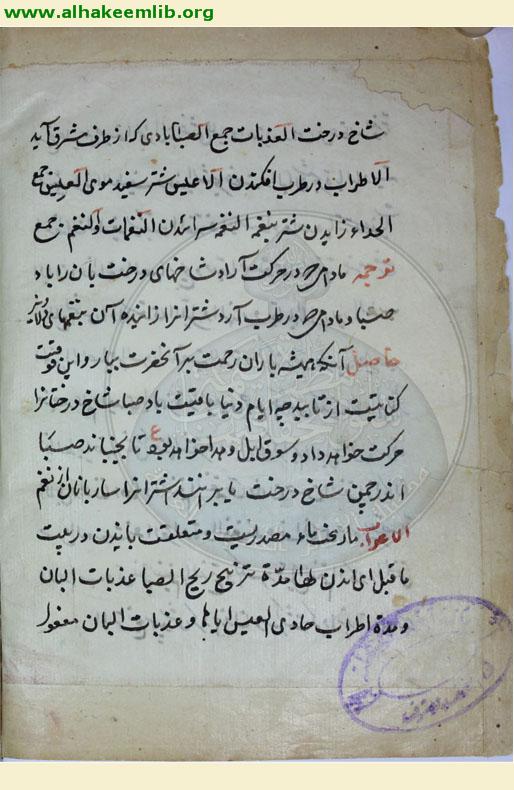 www.alhakeemlib.org
شاخ درخت العذبات جمع الصبا بادی که از طرف مشرق آید
الاطراب در طرب افکندن الاعلیس شتر سفید موی العیس جمع
الحداء زایدن شتر بنغمه النغمه سرائدن النغمات والنغم جمع
ترجمه مادام که در حرکت آرد شاخهای درخت بان را باد
صبا و مادام که در طرب آرد شترانرا رانیده آن بنغمهای
حاصل آنکه همیشه باران رحمت بر آنحضرت ببار و این توقیت
کنایتست از تابید چه ایام دنیا باقیست باد صبا شاخ درختانرا
حرکت خواهد داد و سوق ابل وحدا خواهد بود ع تا بجنباند صبا
اندر چمن شاخ درخت یا برانند اشترانرا ساربانان از نغم
الاعراب مارنحت ماء مصدریست و متعلقت بایذن در بیت
ماقبل ای ایذن لها مدّة ترنیح ریح الصبا عذبات البان
ومدة اطراب حادی العیس ایاها وعذبات البان مفعول